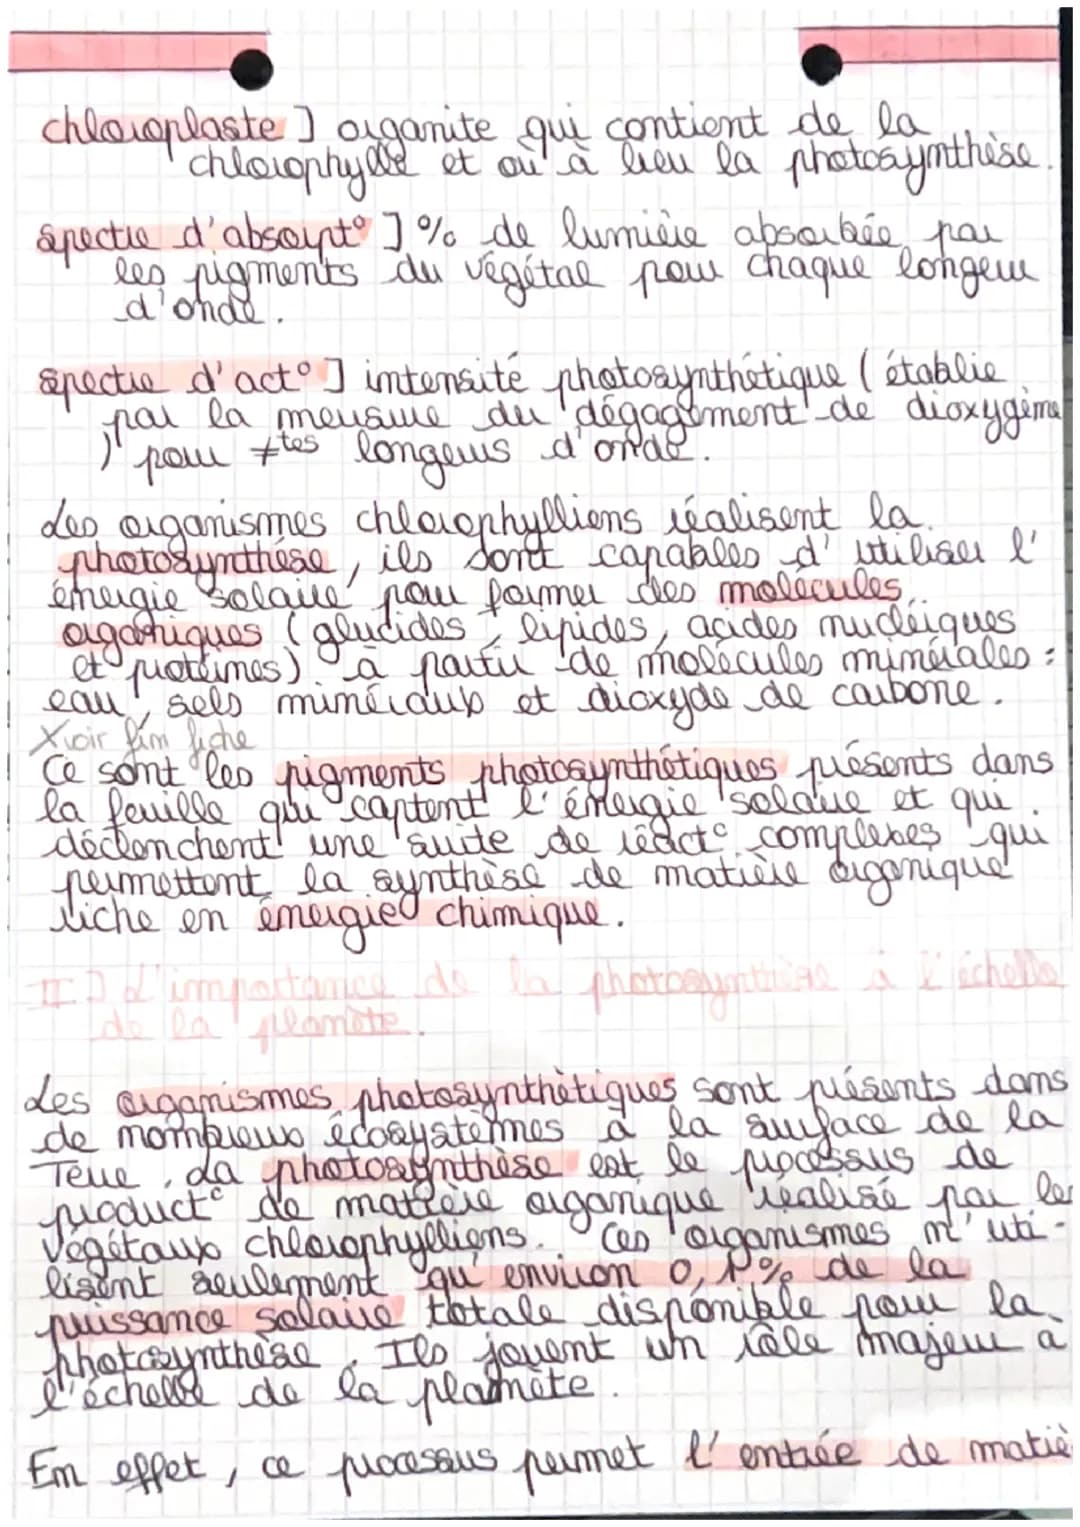 chloroplaste ] organite qui contient de la
chlorophylle et où à lieu la photosynthèse.
spectre d'absorpt° ] % de lumière absorbée par
les pigments du végétal pour chaque longeur
d'onde.
spectre d'act° ] intensité photosynthétique ( établie
par la mersure du dégagement de dioxygène
) pour ≠tes longeurs d'onde.
Les organismes chlorophylliens réalisent la
photosynthèse, ils sont capables d'utiliser l'
énergie solaire pour former des molécules
organiques (glucides, lipides, acides nucléiques
et protéines) à partir de molécules minérales :
eau, sels minéraux et dioxyde de carbone.
X voir fin fiche
Ce sont les pigments photosynthétiques présents dans
la feuille qui captent l'énergie solaire et qui
déclenchent une suite de réact° complexes qui
permettent la synthèse de matière organique
riche en énergie chimique.
II ] L'importance de la photosynthèse à l'échelle
de la planète.
Les organismes photosynthétiques sont présents dans
de nombreux écosystèmes à la surface de la
Terre. La photosynthèse est le processus de
product° de matière organique réalisé par les
végétaux chlorophylliens. Ces organismes n'uti-
lisent seulement qu'environ 0,1% de la
puissance solaire totale disponible pour la
photosynthèse. Ils jouent un rôle majeur à
l'échelle de la planète.
En effet, ce processus permet l'entrée de matiè